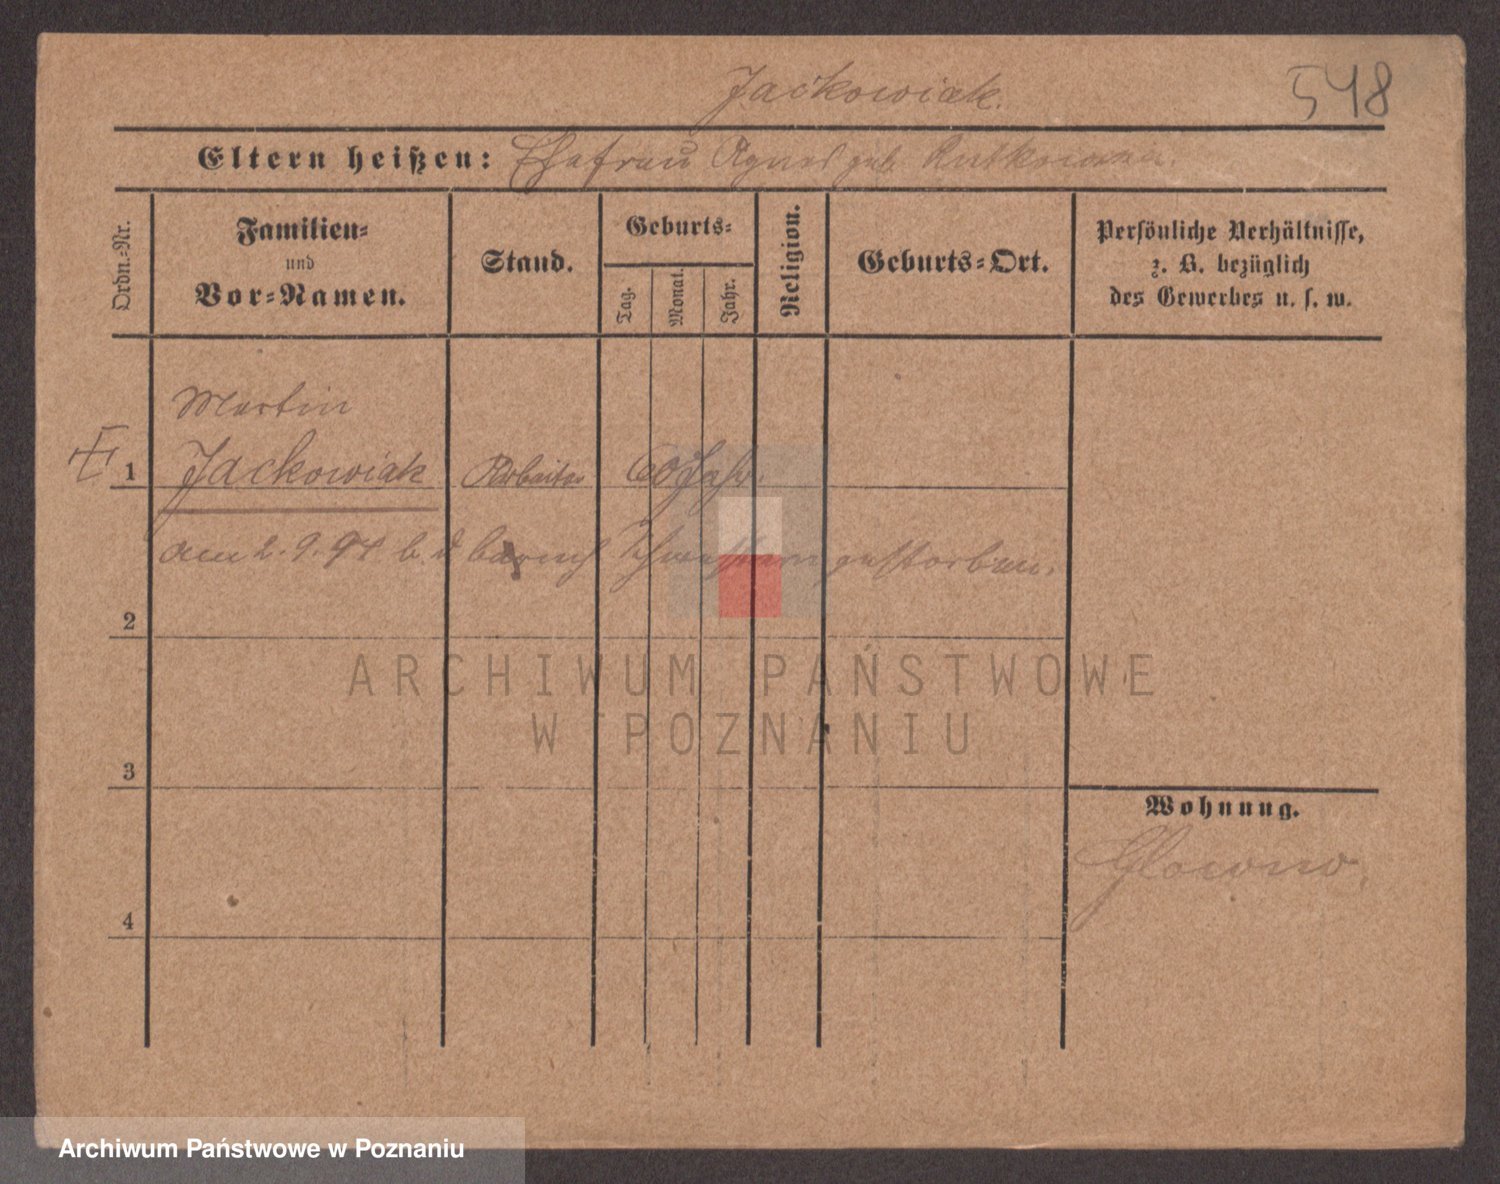 Jackowiak.
548
Eltern heißen: Ehefrau Agnes geb. Rutkowska.
Ordn.-Nr.
Familien-
und
Vor-Namen.
Stand.
Geburts-
Tag.
Monat.
Jahr.
Religion.
Geburts-Ort.
Persönliche Verhältnisse,
z. B. bezüglich
des Gewerbes u. s. w.
Martin
1 Jackowiak Arbeiter 60 Jahr.
am 2. 9. b. d. barmh Schwestern gestorben.
2
ARCHIWUM PAŃSTWOWE
W POZNANIU
3
Wohnung.
Glowno.
4
Archiwum Państwowe w Poznaniu